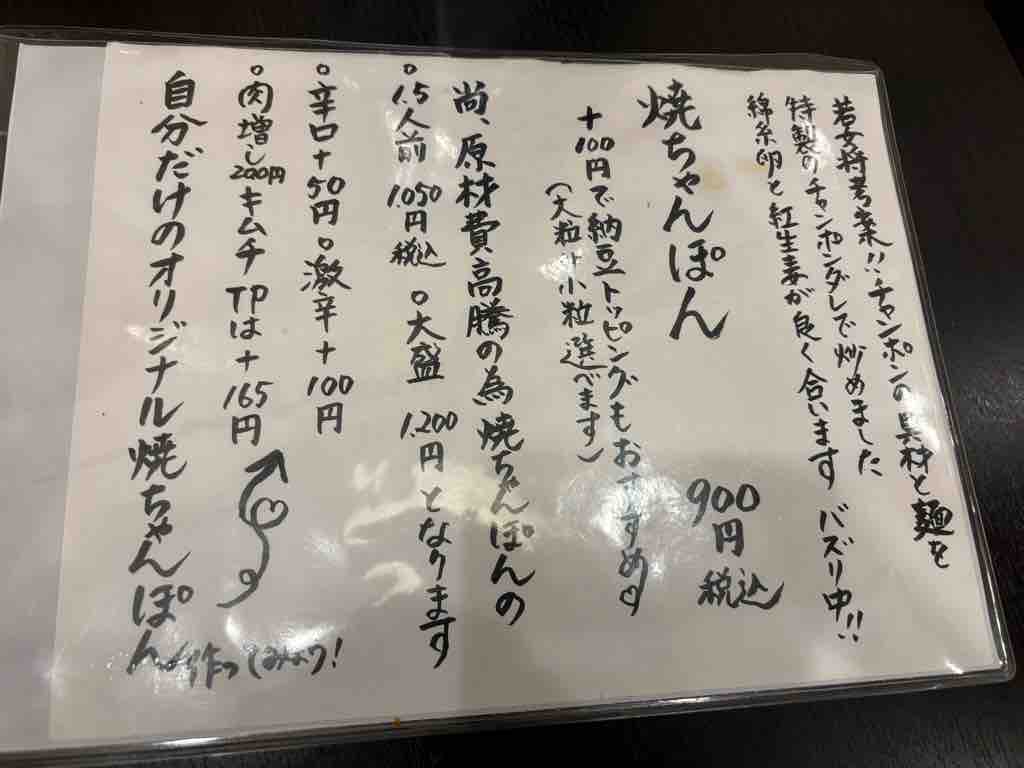 若女将考案!!チャンポンの具材と麺を
特製のチャンポンダレで炒めました
綿糸卵と紅生姜が良く合います バズり中!!
焼ちゃんぽん 900円 税込
+100円で納豆トッピングもおすすめ♡
(大粒 小粒 選べます)
尚、原材費高騰の為 焼ちゃんぽんの
○1.5人前 1.050円 税込 ○大盛 1.200円 となります
○辛口+50円 ○激辛+100円
○肉増し200円 キムチTPは+165円
自分だけのオリジナル焼ちゃんぽん
作ってみよう!